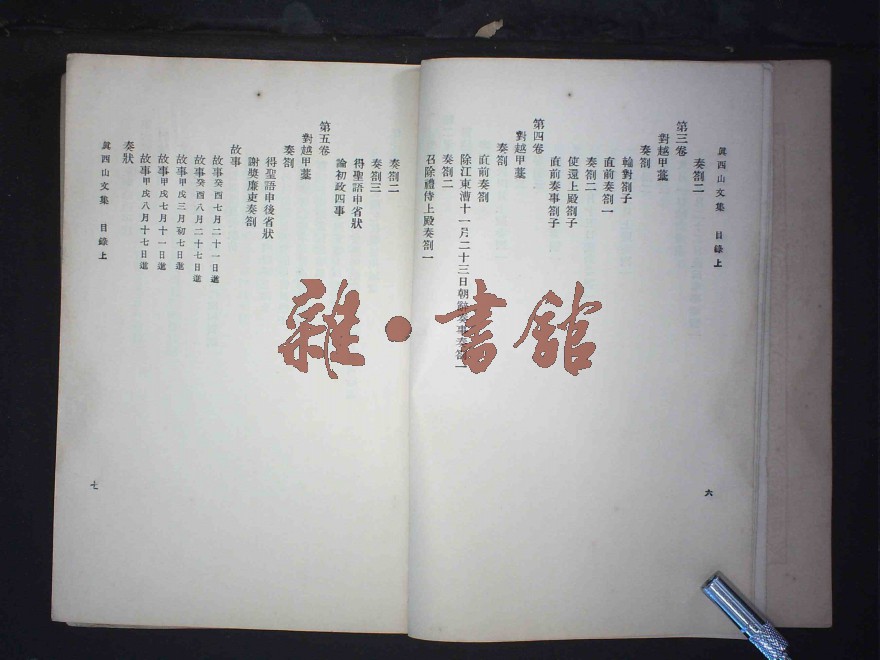 眞西山文集　目錄上
奏劄二
第三卷
對越甲藁
奏劄
輪對劄子
直前奏劄一
奏劄二
使還上殿劄子
直前奏事劄子
第四卷
對越甲藁
奏劄
直前奏劄
除江東漕十一月二十三日朝辭奏事奏劄一
奏劄二
召除禮侍上殿奏劄一
六
奏劄二
奏劄三
得聖語申省狀
論初政四事
第五卷
對越甲藁
奏劄
得聖語申後省狀
謝奬廉吏奏劄
故事
故事癸酉七月二十一日進
故事癸酉八月二十七日進
故事甲戌三月初七日進
故事甲戌七月十一日進
故事甲戌八月十七日進
奏狀
眞西山文集　目錄上
七
雜·書館